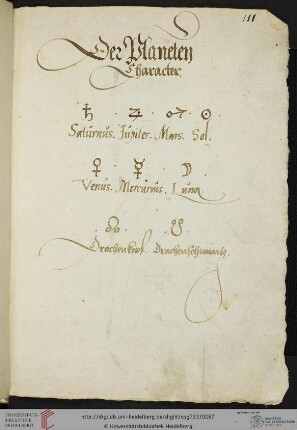 111
Der Planeten
Character.
♄ ♃ ♂ ☉
Saturnus. Jupiter. Mars. Sol.
♀ ☿ ☽
Venus. Mercurius. Luna
☊ ☋
Drachenkopf. Drachenschwantz.
UNIVERSITÄTS
BIBLIOTHEK
HEIDELBERG
http://digi.ub.uni-heidelberg.de/diglit/cpg733/0267
© Universitätsbibliothek Heidelberg